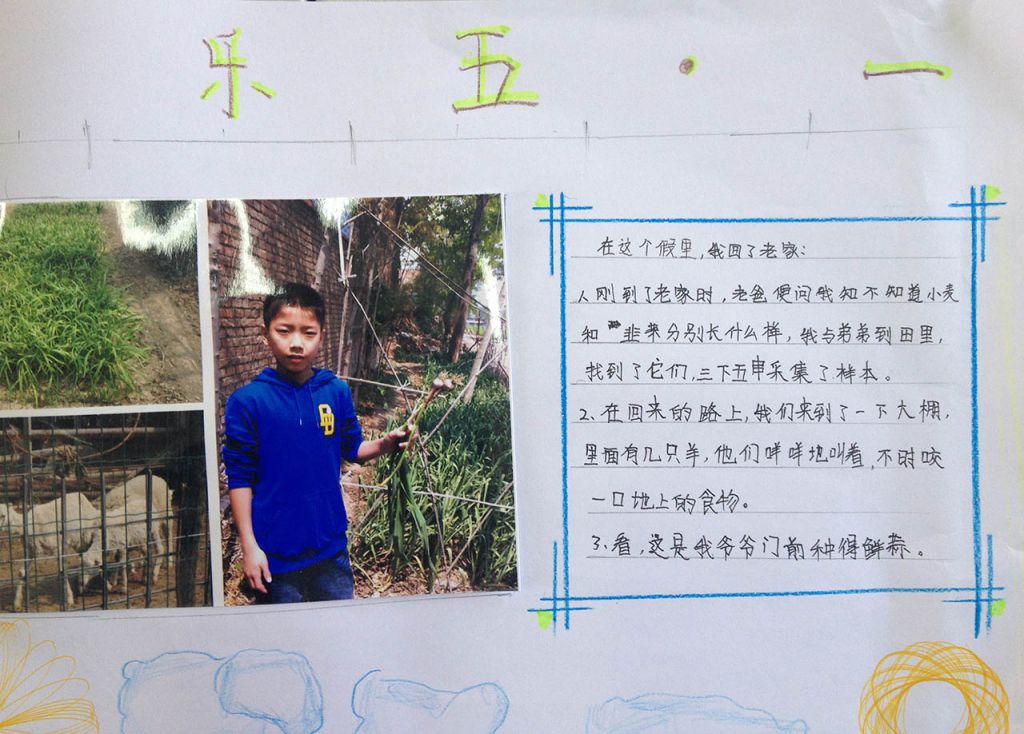 乐五·一
在这个假里，我回了老家：
人刚到了老家时，老爸便问我知不知道小麦
和韭菜分别长什么样，我与弟弟到田里，
找到了它们，三下五申采集了样本。
2、在回来的路上，我们来到了一下大棚，
里面有几只羊，他们咩咩地叫着，不时咬
一口地上的食物。
3、看，这是我爷爷门前种得鲜蒜。